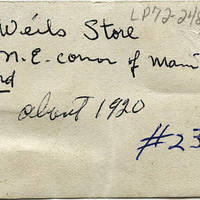 LP72-248
Weils Store
N.E. corner of Main
rd
about 1920
#23